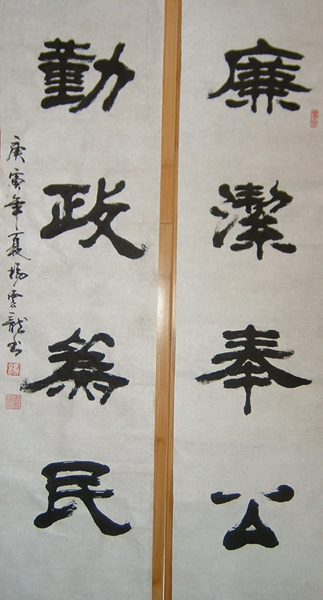 廉潔奉公
勤政為民
庚寅年夏楊雲龍書